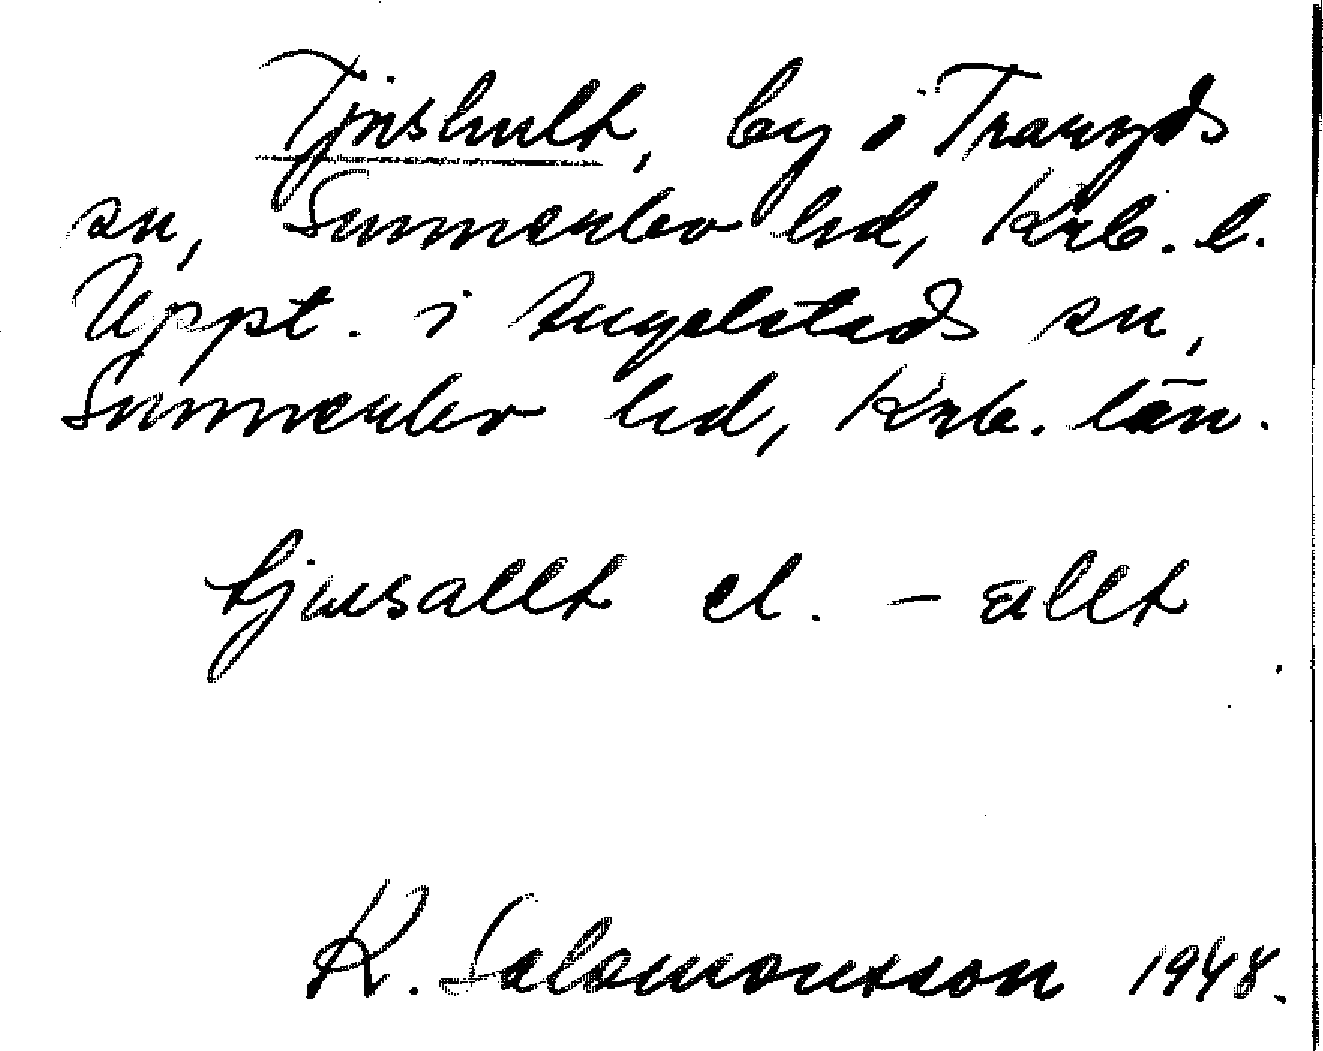 Tjushult, by i Traryds
sn, Sunnerbo hd, Krb. l.
Uppt. i Angelstads sn,
Sunnerbo hd, Krb. län.
tjusallt el. – ællt
K. Salomonsson 1948.